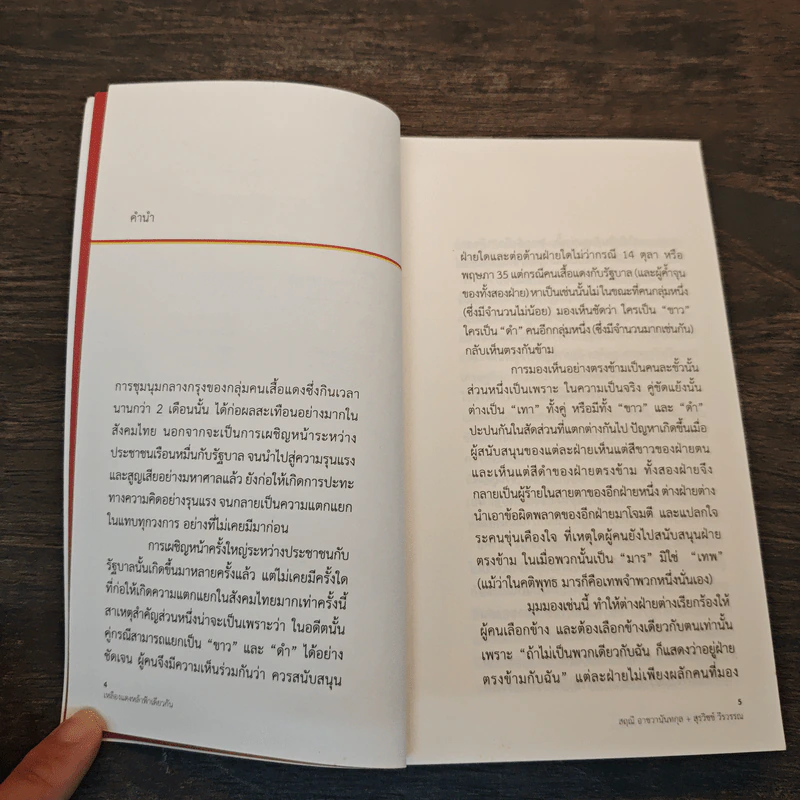 คำนำ
การชุมนุมกลางกรุงของกลุ่มคนเสื้อแดงซึ่งกินเวลา
นานกว่า 2 เดือนนั้น ได้ก่อผลสะเทือนอย่างมากใน
สังคมไทย นอกจากจะเป็นการเผชิญหน้าระหว่าง
ประชาชนเรือนหมื่นกับรัฐบาล จนนำไปสู่ความรุนแรง
และสูญเสียอย่างมหาศาลแล้ว ยังก่อให้เกิดการปะทะ
ทางความคิดอย่างรุนแรง จนกลายเป็นความแตกแยก
ในแทบทุกวงการ อย่างที่ไม่เคยมีมาก่อน
การเผชิญหน้าครั้งใหญ่ระหว่างประชาชนกับ
รัฐบาลนั้นเกิดขึ้นมาหลายครั้งแล้ว แต่ไม่เคยมีครั้งใด
ที่ก่อให้เกิดความแตกแยกในสังคมไทยมากเท่าครั้งนี้
สาเหตุสำคัญส่วนหนึ่งน่าจะเป็นเพราะว่า ในอดีตนั้น
คู่กรณีสามารถแยกเป็น “ขาว” และ “ดำ” ได้อย่าง
ชัดเจน ผู้คนจึงมีความเห็นร่วมกันว่า ควรสนับสนุน
4
เหลืองแดงหล้าฟ้าเดียวกัน
ฝ่ายใดและต่อต้านฝ่ายใดไม่ว่ากรณี 14 ตุลา หรือ
พฤษภา 35 แต่กรณีคนเสื้อแดงกับรัฐบาล (และผู้ค้ำจุน
ของทั้งสองฝ่าย) หาเป็นเช่นนั้นไม่ ในขณะที่คนกลุ่มหนึ่ง
(ซึ่งมีจำนวนไม่น้อย) มองเห็นชัดว่า ใครเป็น “ขาว”
ใครเป็น “ดำ” คนอีกกลุ่มหนึ่ง (ซึ่งมีจำนวนมากเช่นกัน)
กลับเห็นตรงกันข้าม
การมองเห็นอย่างตรงข้ามเป็นคนละขั้วนั้น
ส่วนหนึ่งเป็นเพราะ ในความเป็นจริง คู่ขัดแย้งนั้น
ต่างเป็น “เทา” ทั้งคู่ หรือมีทั้ง “ขาว” และ “ดำ”
ปะปนกันในสัดส่วนที่แตกต่างกันไป ปัญหาเกิดขึ้นเมื่อ
ผู้สนับสนุนของแต่ละฝ่ายเห็นแต่สีขาวของฝ่ายตน
และเห็นแต่สีดำของฝ่ายตรงข้าม ทั้งสองฝ่ายจึง
กลายเป็นผู้ร้ายในสายตาของอีกฝ่ายหนึ่ง ต่างฝ่ายต่าง
นำเอาข้อผิดพลาดของอีกฝ่ายมาโจมตี และแปลกใจ
ระคนขุ่นเคืองใจ ที่เหตุใดผู้คนยังไปสนับสนุนฝ่าย
ตรงข้าม ในเมื่อพวกนั้นเป็น “มาร” มิใช่ “เทพ”
(แม้ว่าในคติพุทธ มารก็คือเทพจำพวกหนึ่งนั่นเอง)
มุมมองเช่นนี้ ทำให้ต่างฝ่ายต่างเรียกร้องให้
ผู้คนเลือกข้าง และต้องเลือกข้างเดียวกับตนเท่านั้น
เพราะ “ถ้าไม่เป็นพวกเดียวกับฉัน ก็แสดงว่าอยู่ฝ่าย
ตรงข้ามกับฉัน” แต่ละฝ่ายไม่เพียงผลักคนที่มอง
5
สฤณี อาชวานันทกุล + สุรวิชช์ วีรวรรณ